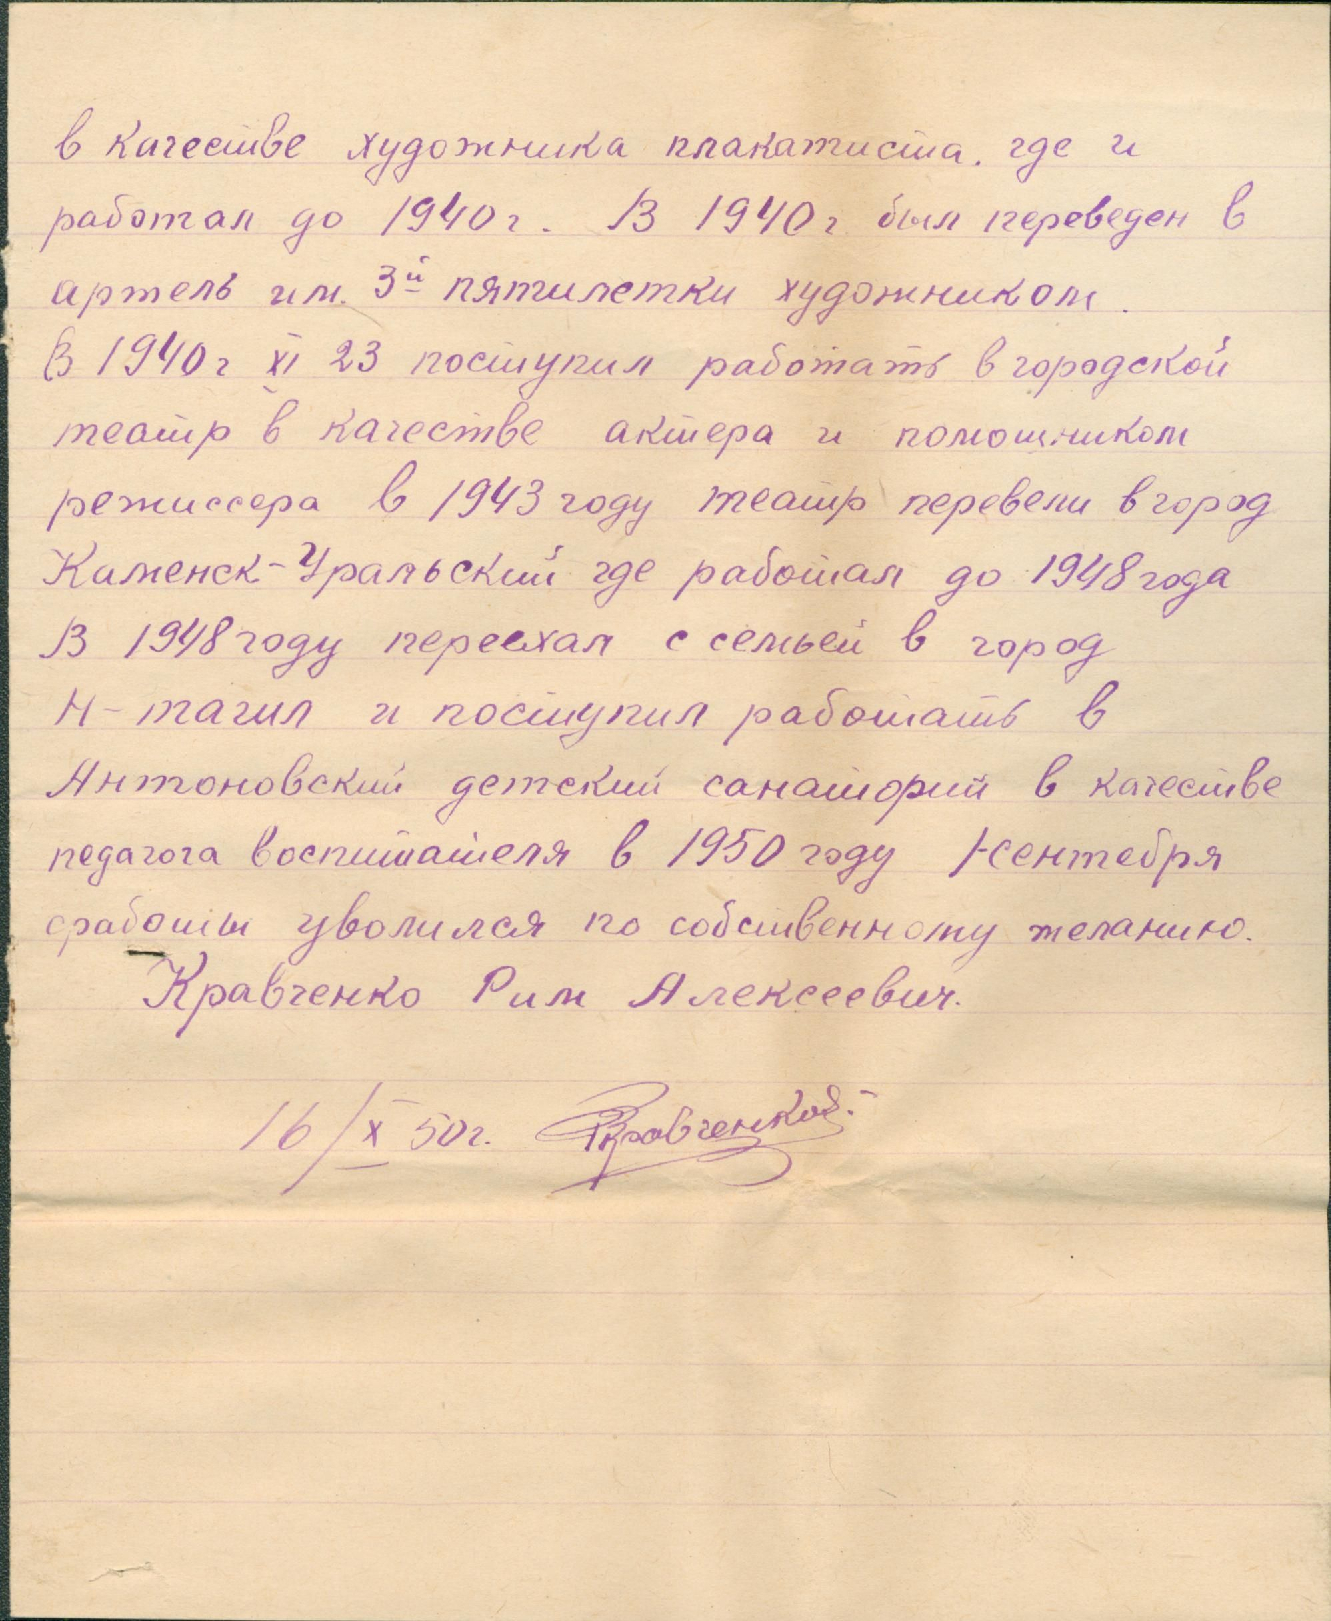 в качестве художника плакатиста. где и
работал до 1940 г. В 1940 г был переведен в
артель им. 3й пятилетки художником.
В 1940 г XI 23 поступил работать в городской
театр в качестве актера и помощником
режиссера в 1943 году театр перевели в город
Каменск-Уральский где работал до 1948 года
В 1948 году переехал с семьей в город
Н-тагил и поступил работать в
Антоновский детский санаторий в качестве
педагога воспитателя в 1950 году 1-сентебря
сработы уволился по собственному желанию.
Кравченко Рим Алексеевич.
16/X 50 г. РКравченко